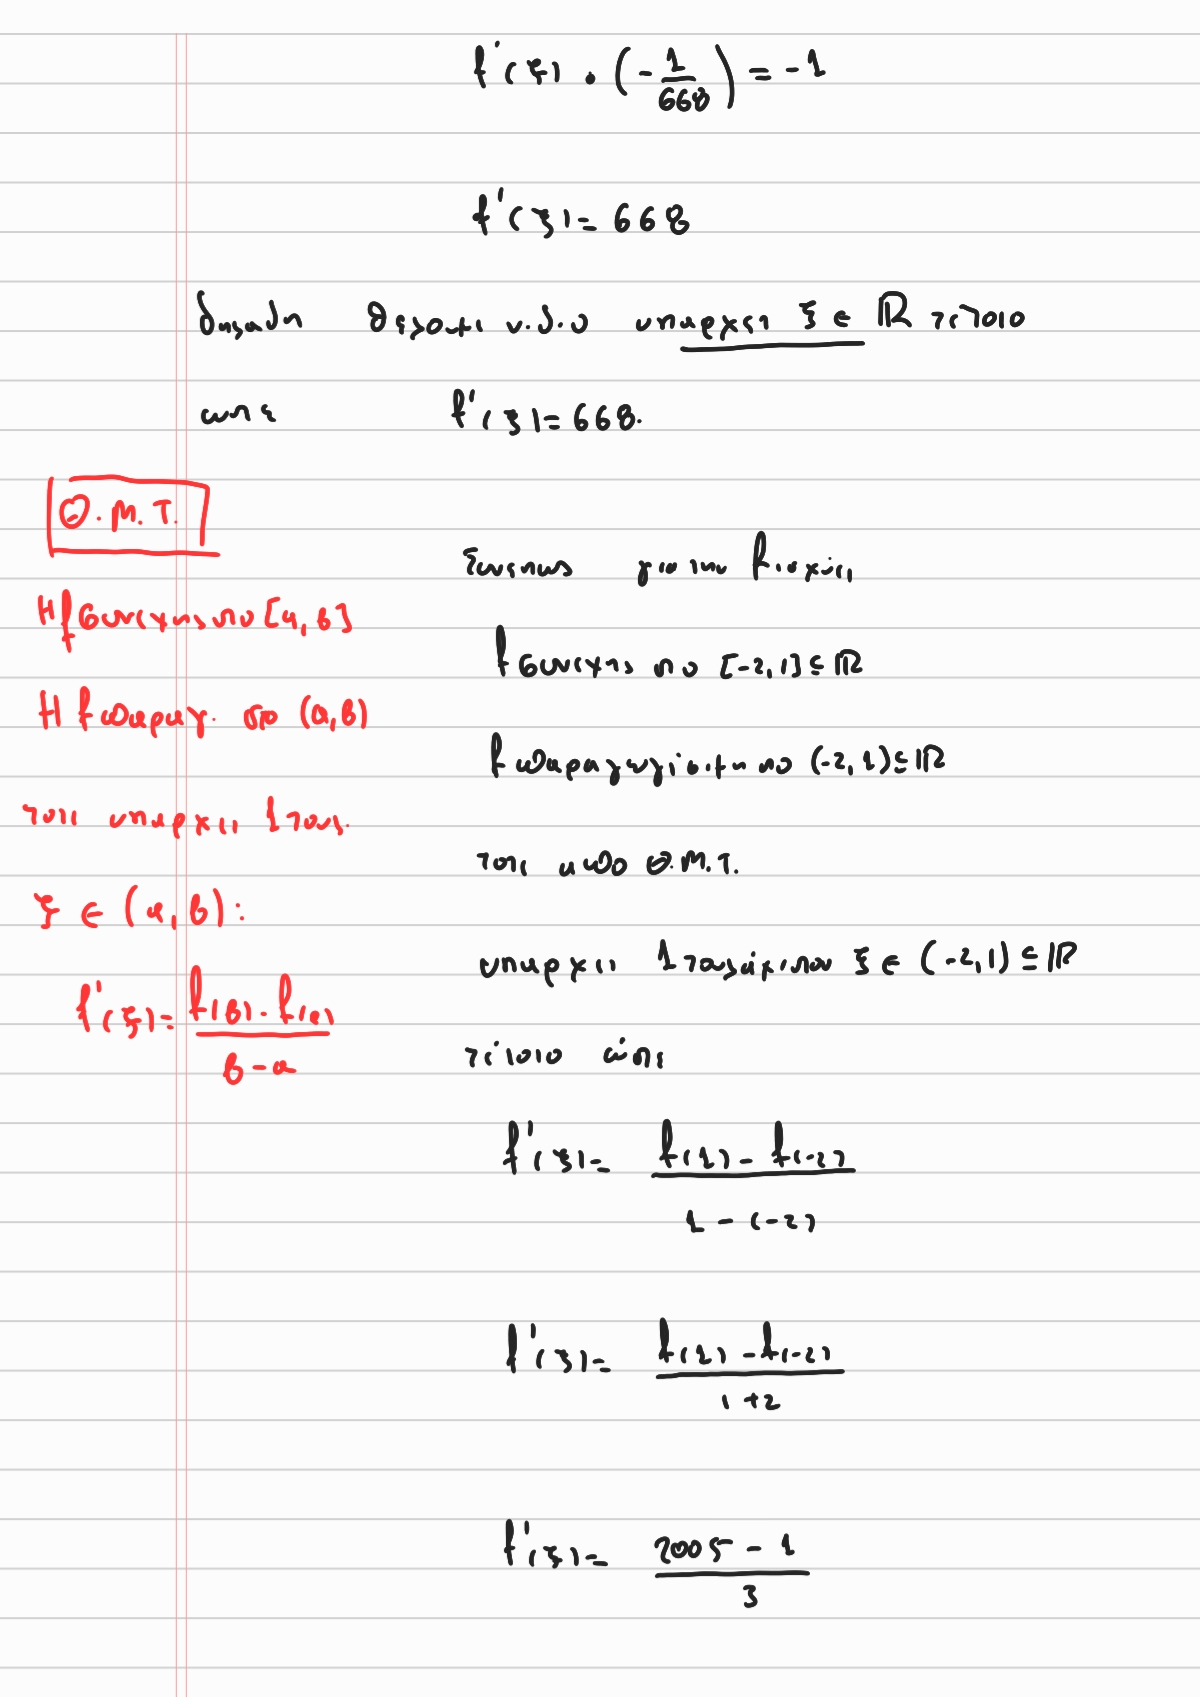 f'(ξ) · (-1/668) = -1
f'(ξ) = 668
δηλαδή θέλουμε ν.δ.ο υπάρχει ξ ∈ ℝ τέτοιο
ώστε f'(ξ) = 668.
Θ.Μ.Τ.
Η f συνεχής στο [α, β]
Η f παραγ. στο (α, β)
τότε υπάρχει 1 τουλ.
ξ ∈ (α, β):
f'(ξ) = f(β) - f(α) / β - α
Συνεπώς για την f ισχύει
f συνεχής στο [-2, 1] ⊆ ℝ
f παραγωγίσιμη στο (-2, 1) ⊆ ℝ
τότε από Θ.Μ.Τ.
υπάρχει 1 τουλάχιστον ξ ∈ (-2, 1) ⊆ ℝ
τέτοιο ώστε
f'(ξ) = f(1) - f(-2) / 1 - (-2)
f'(ξ) = f(1) - f(-2) / 1 + 2
f'(ξ) = 2005 - 1 / 3